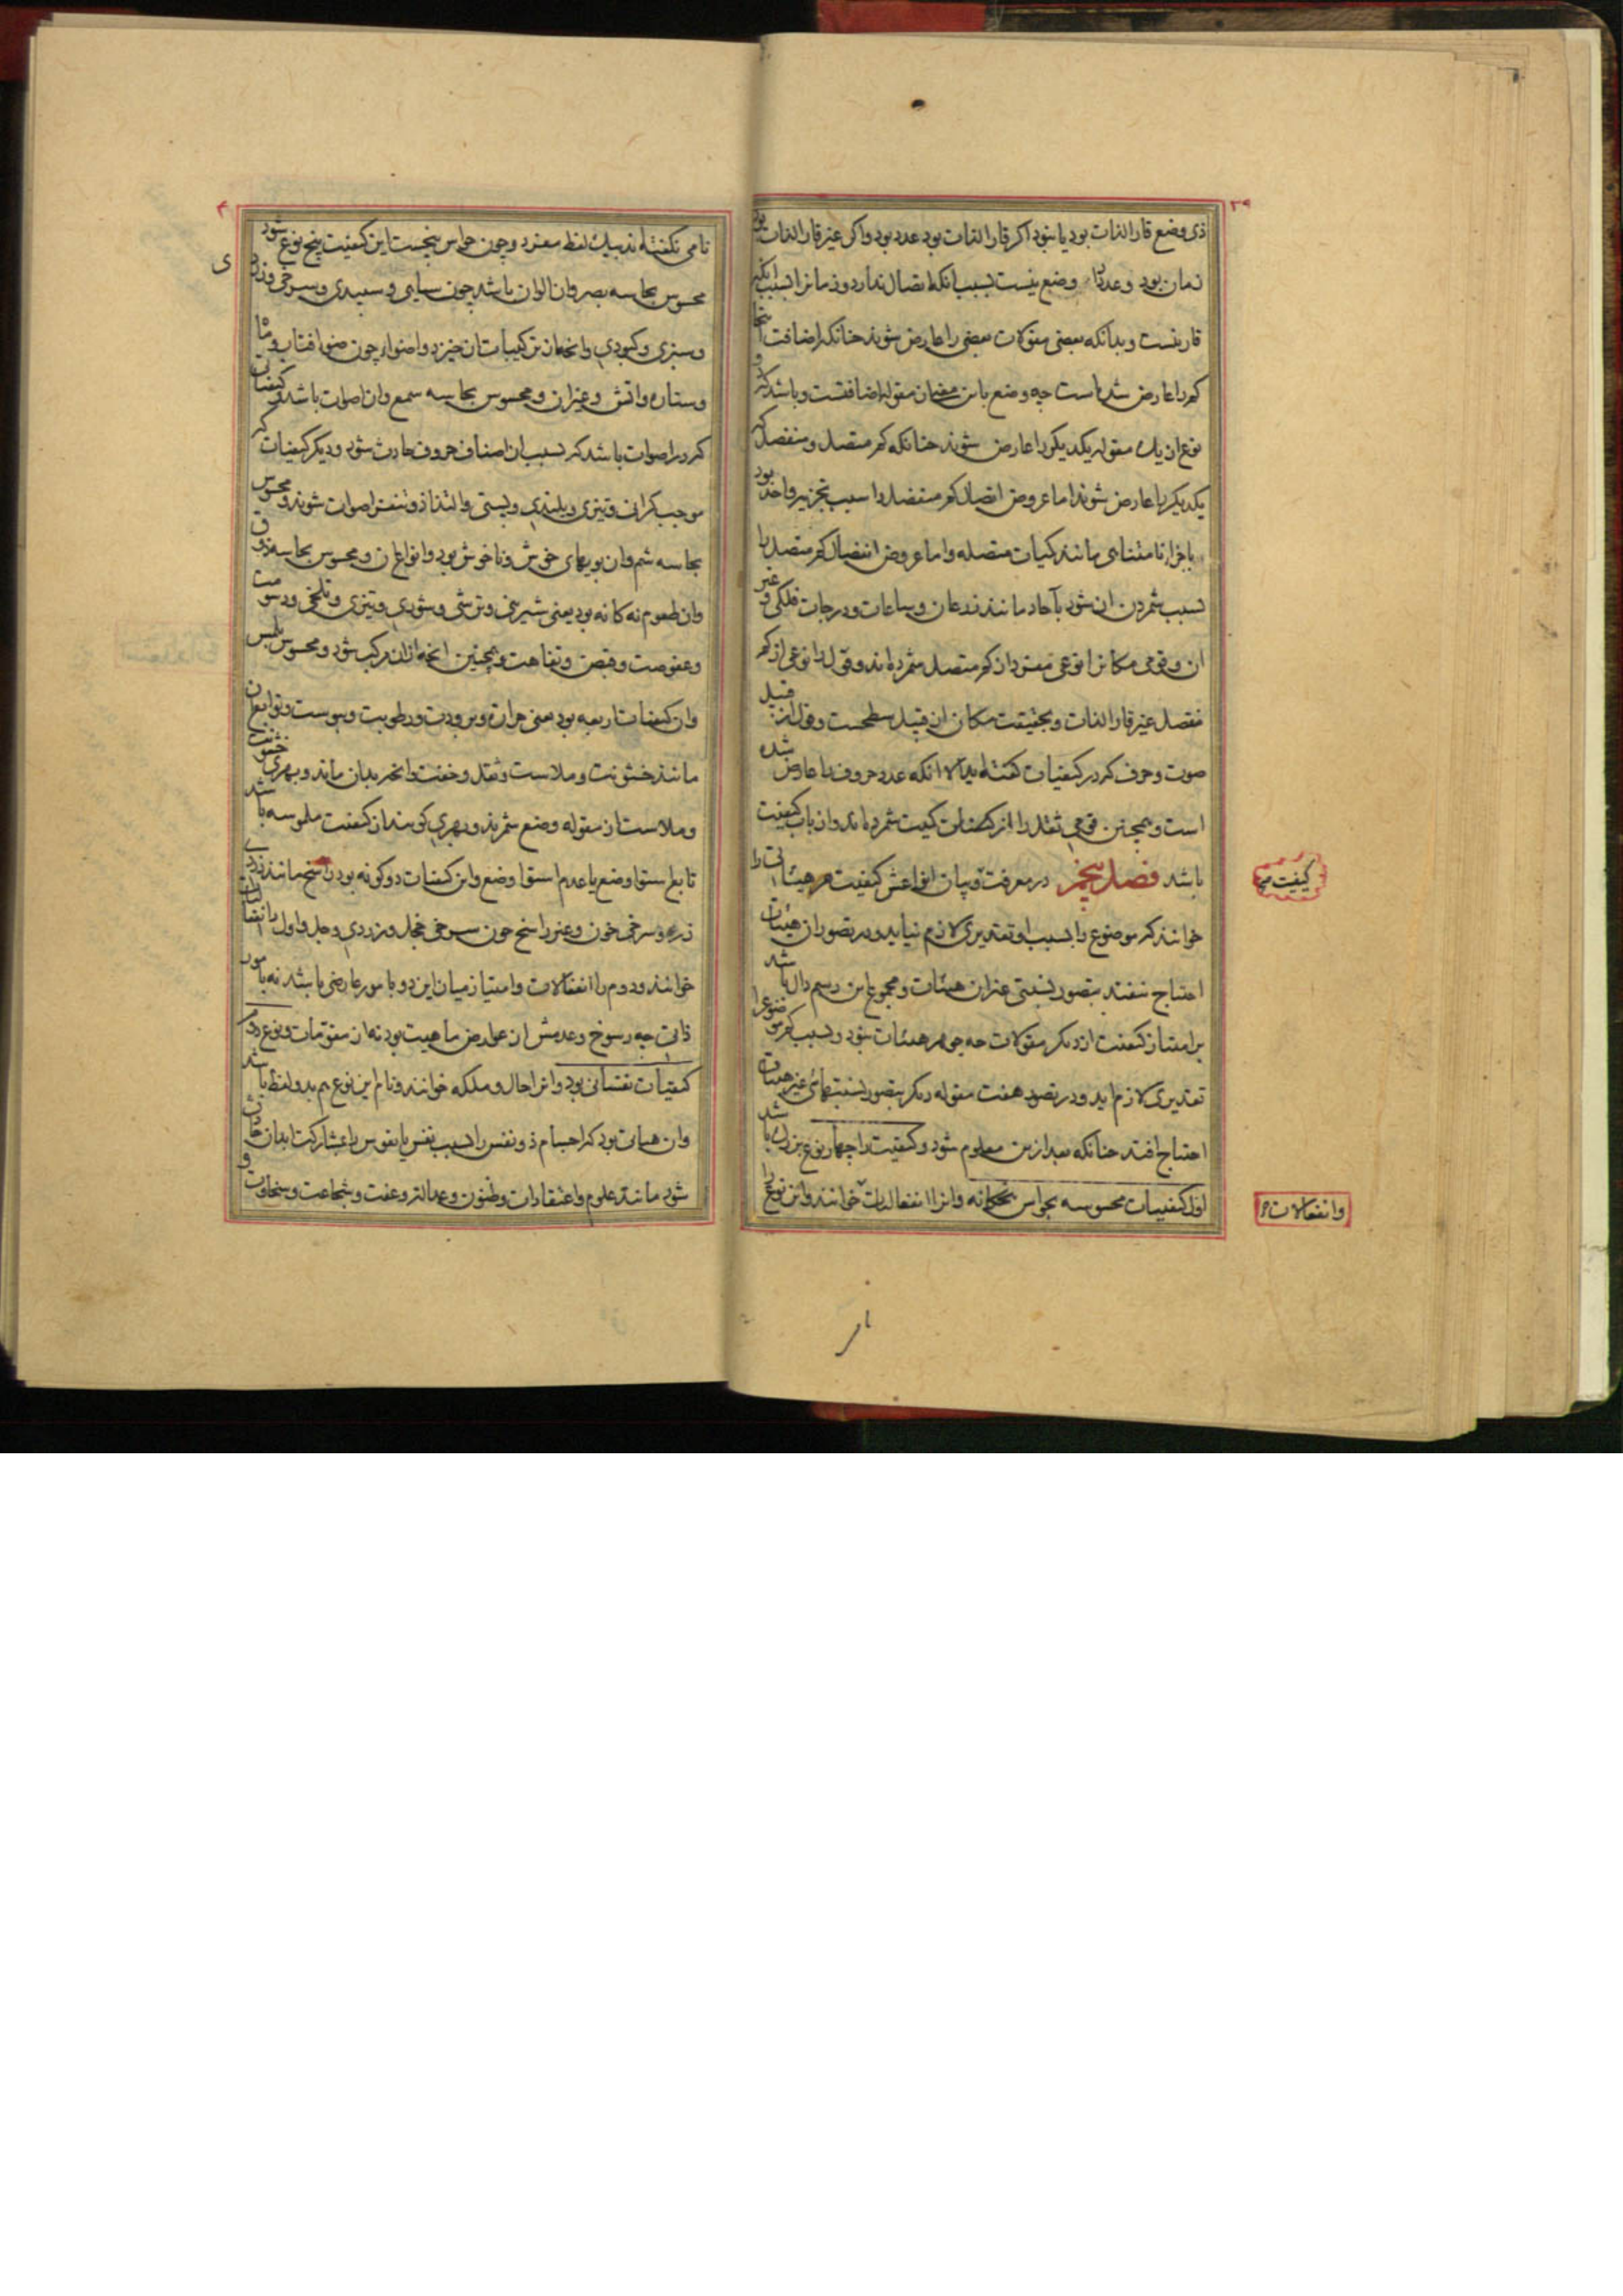 ۳۹
ذی وضع قار الذات بود یا نبود اکر قار الذات بود عدد بود واکر غیر قار الذات بود
زمان بود و عدد را وضع نیست بسبب انکه اتصال ندارد و زمانرا بسبب انکه
قار نیست و بدانکه بعضی مقولات بعضی را عارض شوند جنانکه اضافت اینجا
کم را عارض شده است چه وضع باین معنی از مقوله اضافتست و باشد که دو
نوع از یک مقوله یکدیکر را عارض شوند جنانکه کم متصل و منفصل که
یکدیکر را عارض شوند اما عروض اتصال کم منفصل را سبب تجزیه واحد بود
باجزاء نامتناهی مانند کمیات متصله و اما عروض انفصال کم متصل را
بسبب شمردن ان شود بآحاد مانند ذرعان و ساعات و درجات فلکی و غیر
ان و قومی مکانرا نوعی مفرد از کم متصل شمرده اند و قول را نوعی از کم
منفصل غیر قار الذات و بحقیقت مکان از قبیل سطحست و قول از قبیل
صوت و حرف که در کیفیات کفته اید الا انکه عدد حروف را عارض شده
است و همچنین قومی ثقل را از کمیت شمرده اند و ان از باب کیفیت
باشد فصل پنجم در معرفت و بیان انواعش کیفیت هر هیئاتی را
خوانند که موضوع را بسبب او تقدیری لازم نیاید و در تصور ان هیئات
احتیاج نیفتد بتصور نسبتی غیر ان هیئات و مجموع این رسم دال باشد
بر امتیاز کیفیت از دیکر مقولات چه جوهر هیئات نبود و بسبب کم موضوع را
تقدیری لازم اید و در تصور هفت مقوله دیکر بتصور نسبتهای غیر هیئات
احتیاج افتد جنانکه بعد ازین معلوم شود و کیفیت را چهار نوع بزرک باشد
اول کیفیات محسوسه بحواس پنجکانه وانرا انفعالیات خوانند و این نوع را
کیفیت
وانفعالات
۴۰
نامی نکفته اند بیک لفظ مفرد و چون حواس پنجست این کیفیت پنج نوع شود
محسوس بحاسه بصر و ان الوان باشد چون سیاهی و سبیدی و سرخی و زردی
و سبزی و کبودی و انچه از ترکیبات ان خیزد و اضواء چون ضوء افتاب و ماه
و ستاره و اتش و غیر ان و محسوس بحاسه سمع و ان اصوات باشد و کیفیاتی
که در اصوات باشد که بسبب ان اصناف حروف حادث شود و دیکر کیفیات که
موجب کرانی و تیزی و بلندی و پستی و التذاذ و تنفر اصوات شوند و محسوس
بحاسه شم و ان بویهای خوش و ناخوش بود و انواع ان و محسوس بحاسه ذوق
وان طعوم نه کانه بود یعنی شیرینی و ترشی و شوری و تیزی و تلخی و دسومت
و عفوصت و قبض و تفاهت و همچنین انچه ازان مرکب شود و محسوس بلمس
وان کیفیات اربعه بود یعنی حرارت و برودت و رطوبت و یبوست و توابع ان
مانند خشونت و ملاست و ثقل و خفت و انچه بدان ماند و بهری خشونت
و ملاست از مقوله وضع شمرند و بهری کویند ان کیفیت ملموسه باشد
تابع استوا وضع یا عدم استوا وضع و این کیفیات دو کونه بود راسخ مانند زردی
زر و سرخی خون و غیر راسخ چون سرخی خجل و زردی وجل و اول را انفعالیات
خوانند و دوم را انفعالات و امتیاز میان این دو بامور عارضی باشد نه بامور
ذاتی چه رسوخ و عدمش از عوارض ماهیت بود نه از مقومات و نوع دوم
کیفیات نفسانی بود و انرا حال و ملکه خوانند و نام این نوع هم بدو لفظ باشد
وان هیاتی بود که اجسام ذو نفس را بسبب نفس یا نفوس را بمشارکت ابدان حادث
شود مانند علوم و اعتقادات و ظنون و عدالت و عفت و شجاعت و سخاوت و